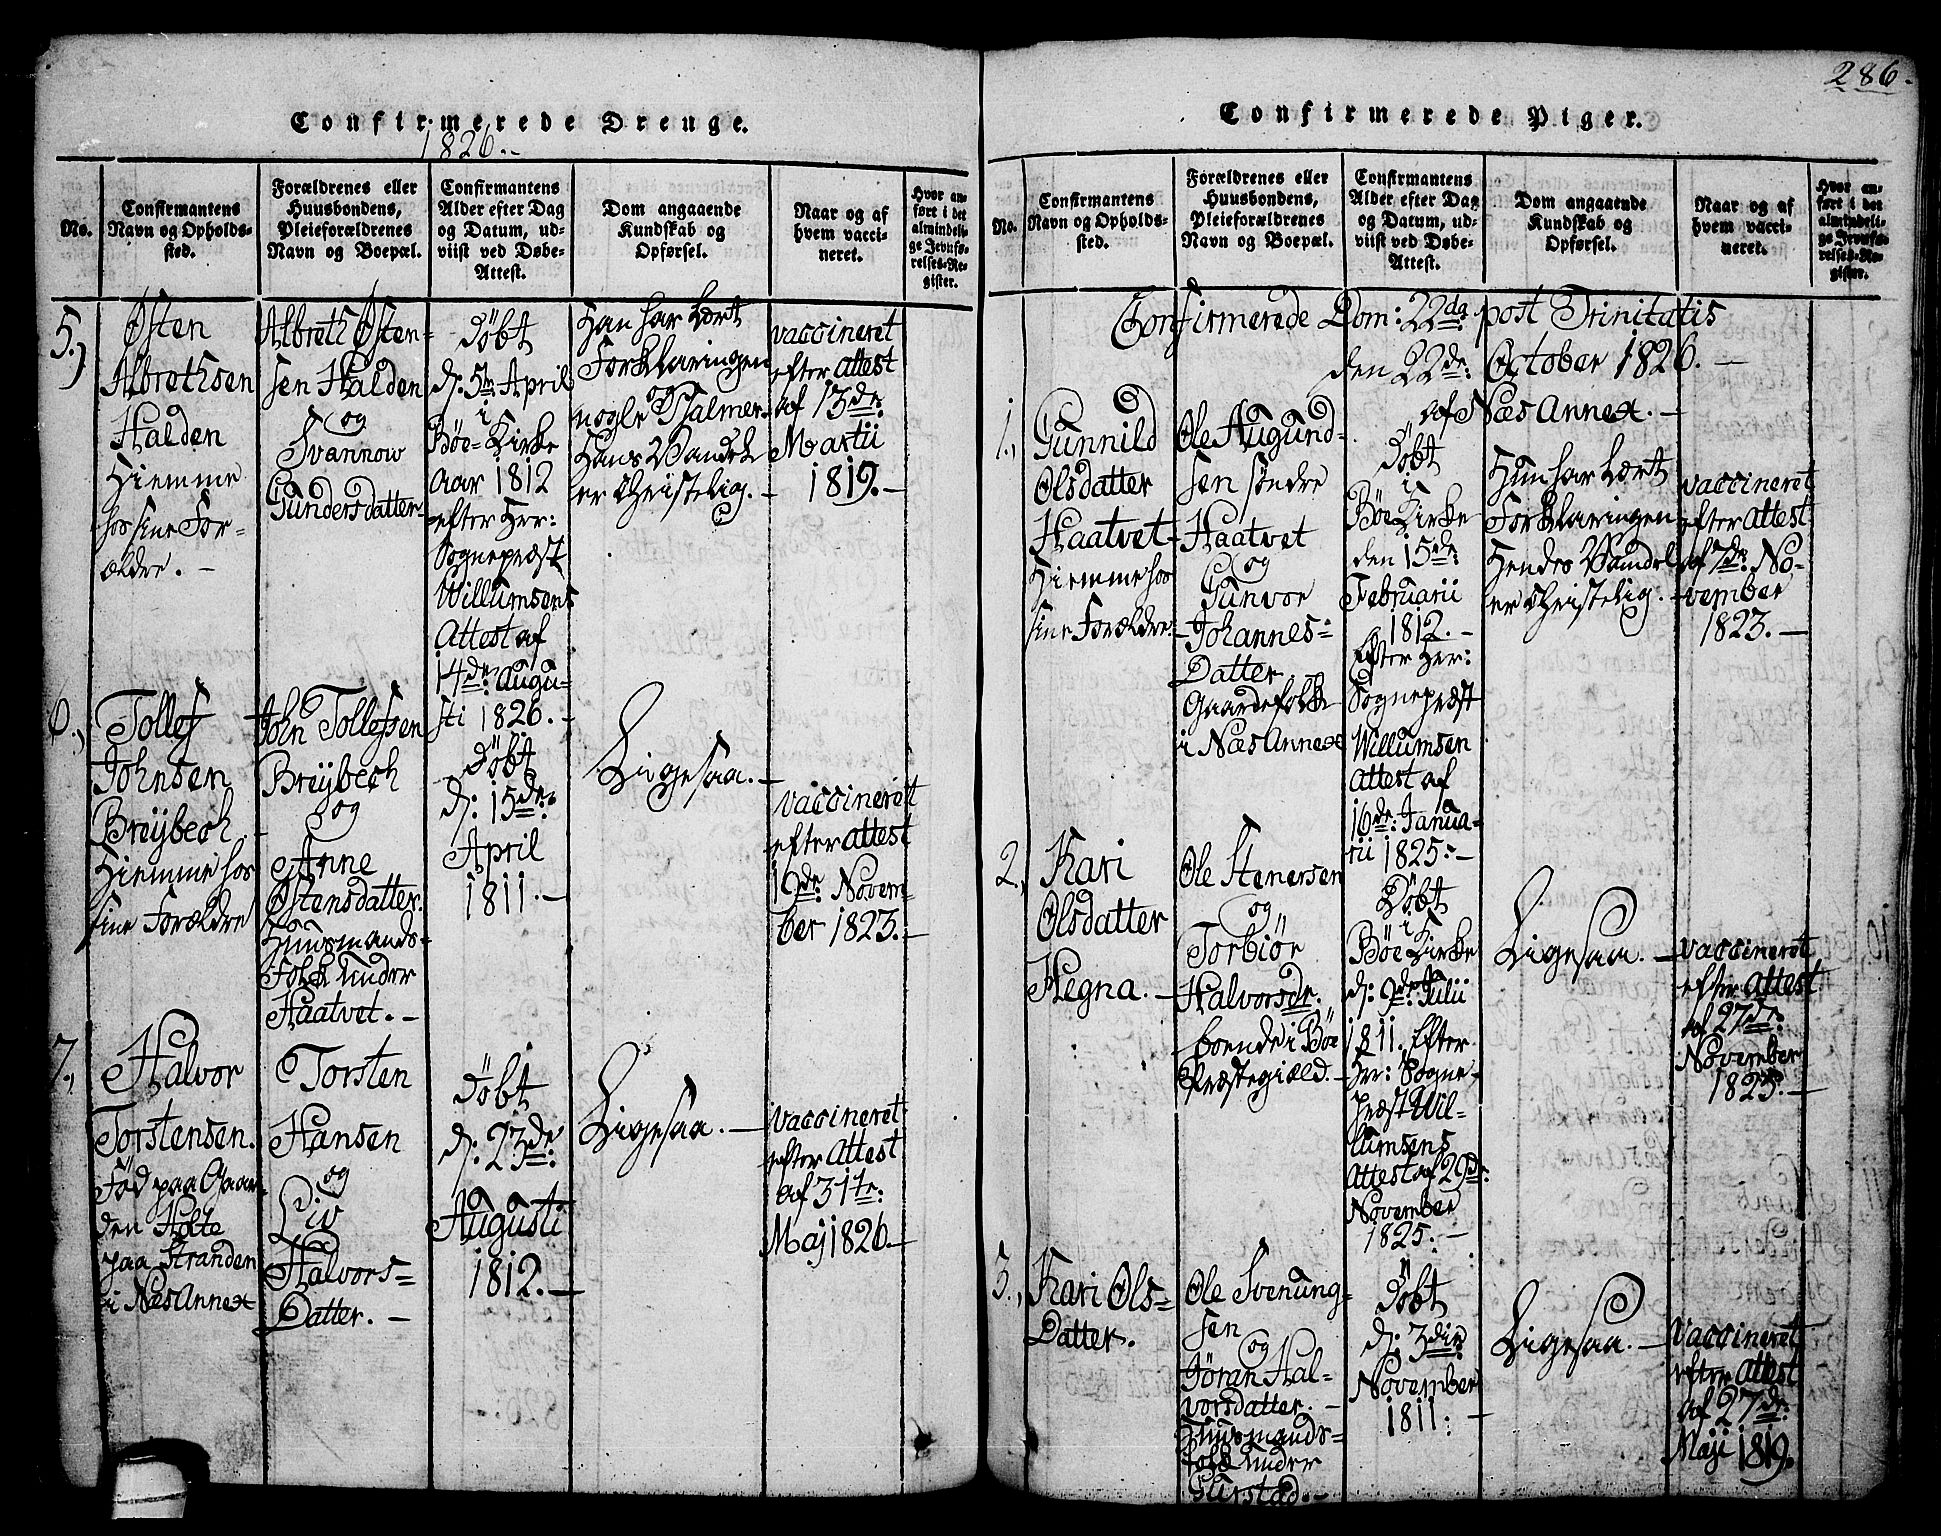 286.
Confirmerede Drenge.
1826.-
No.
Confirmantens
Navn og Opholds-
sted.
Forældrenes eller
Huusbondens,
Pleieforældrenes
Navn og Boepæl.
Confirmantens
Alder efter Dag
og Datum, ud-
viist ved Døbe-
Attest.
Dom angaaende
Kundskab og
Opførsel.
Naar og af
hvem vacci-
neret.
Hvor an-
ført i det
almindeli-
ge Jevnfø-
relses-Re-
gister.
5.)
Østen
Albrethsen
Halden
Hiemme
hos sine For-
ældre. -
Albreth Østen-
sen Halden
og
Svannow
Gundersdatter
Døbt
d: 5te April
i
Bøe-Kirke
aar 1812
efter Her:
Sognepræst
Willumsens
Attest af
14de: Augu-
sti 1826. -
Han har Lært
Forklaringen
og
nogle Psalmer.
Hans Vandel
er Christelig. -
vaccineret
efter attest
af 13de:
Martii
1819. -
6.,
Tollef
Johnsen
Breÿbech.
Hiemme hos
sine Forældre
John Tollefsen
Breÿbech
og
Anne
Østensdatter.
Huusmands-
Folk under
Haatvet. -
Døbt
d: 15de:
April
1811. -
Ligesaa. -
vaccineret
efter attest
19de: Novem-
ber 1823. -
7.,
Halvor
Torstensen.
Fød paa Gaar-
den Holte
paa Stranden
i Næs Annex
Torsten
Hansen
og
Liv
Halvors-
Datter. -
Døbt
d: 23de:
Augusti
1812. -
Ligesaa. -
vaccineret
efter Attest
af 31te:
Maj 1826. -
Confirmerede Piger.
No.
Confirmantens
Navn og Opholds-
sted.
Forældrenes eller
Huusbondens,
Pleieforældrenes
Navn og Boepæl.
Confirmantens
Alder efter Dag
og Datum, ud-
viist ved Døbe-
Attest.
Dom angaaende
Kundskab og
Opførsel.
Naar og af
hvem vacci-
neret.
Hvor an-
ført i det
almindeli-
ge Jevnfø-
relses-Re-
gister.
Confirmerede Dom: 22da: post Trinitatis
den 22de: October 1826. -
af Næs Annex. -
1.,
Gunnild
Olsdatter
Haatvet
Hiemme hos
sine Forældre.
Ole Augund-
sen søndre
Haatvet
og
Gunvor
Johannes-
Datter
Gaardefolk
i Næs Annex
Døbt
i
Bøe Kirke
den 15de:
Februarii
1812. -
Efter Her:
Sognepræst
Willumsen
attest af
16de: Janua-
rii 1825. -
Hun har Lært
Forklaringen
Hendes Vandel
er Christelig. -
vaccineret
efter attest
af 7de: No-
vember
1823. -
2.,
Kari
Olsdatter
Hegna. -
Ole Stenersen
og
Torbiør
Halvorsdr.
boende i Bøe
Præstegiæld. -
Døbt
i
Bøe Kirke
d: 9de: Julii
1811. Efter
Hr: Sogne-
præst Wil-
lumsens
Attest af 29de:
November
1825. -
Ligesaa. -
vaccineret
efter Attest
af 27de:
November
1823. -
3.,
Kari Ols-
Datter.
Ole Svenung-
sen
og
Jøran Hal-
vorsdatter. -
Huusmands-
folk under
Gurstad. -
Døbt
d: 3die
November
1811: -
Ligesaa. -
vaccineret
efter Attest
af 27de:
Maji 1819.